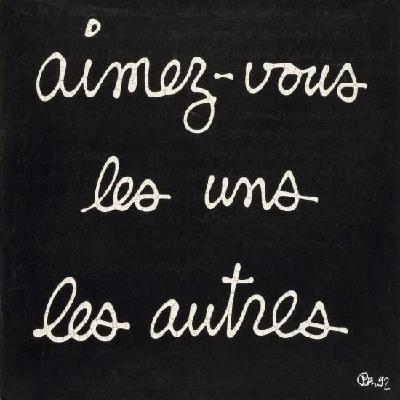 aimez-vous
les uns
les autres